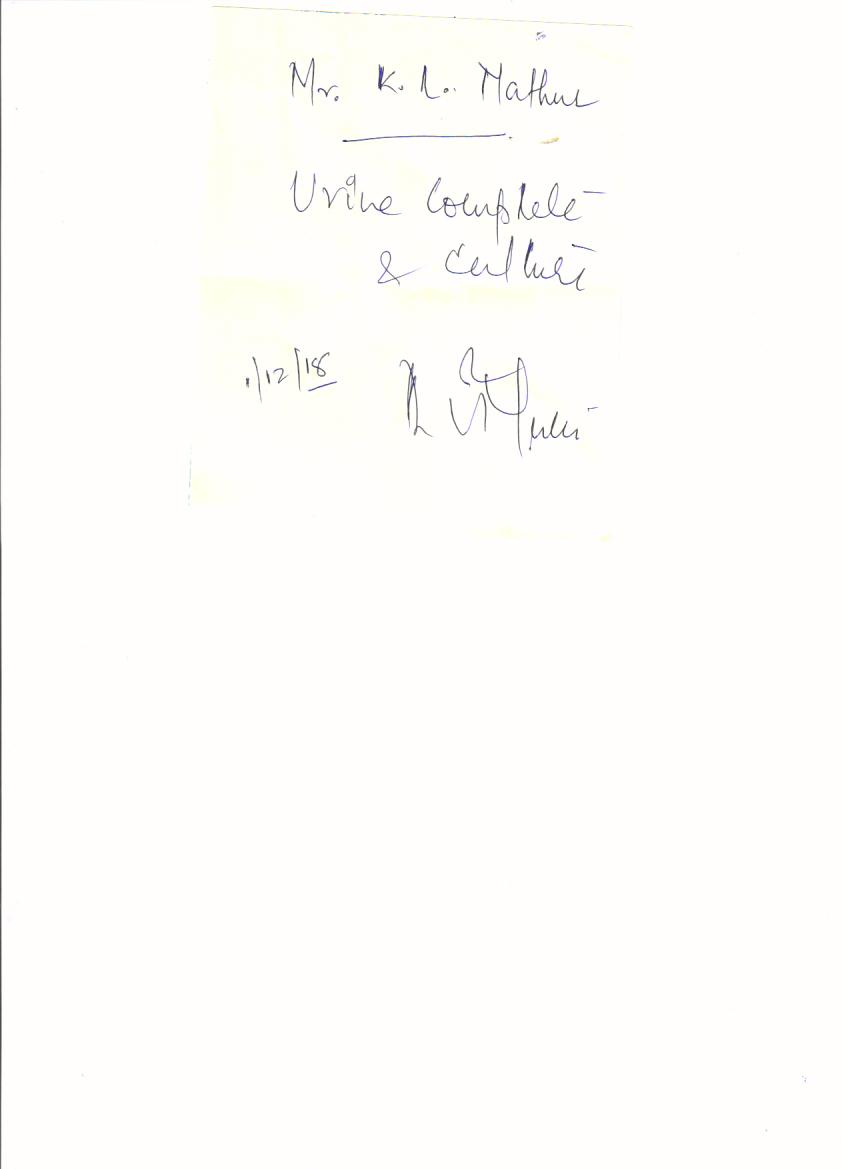 Mr. K. L. Mathur
Urine Complete
& Culture
1/12/18